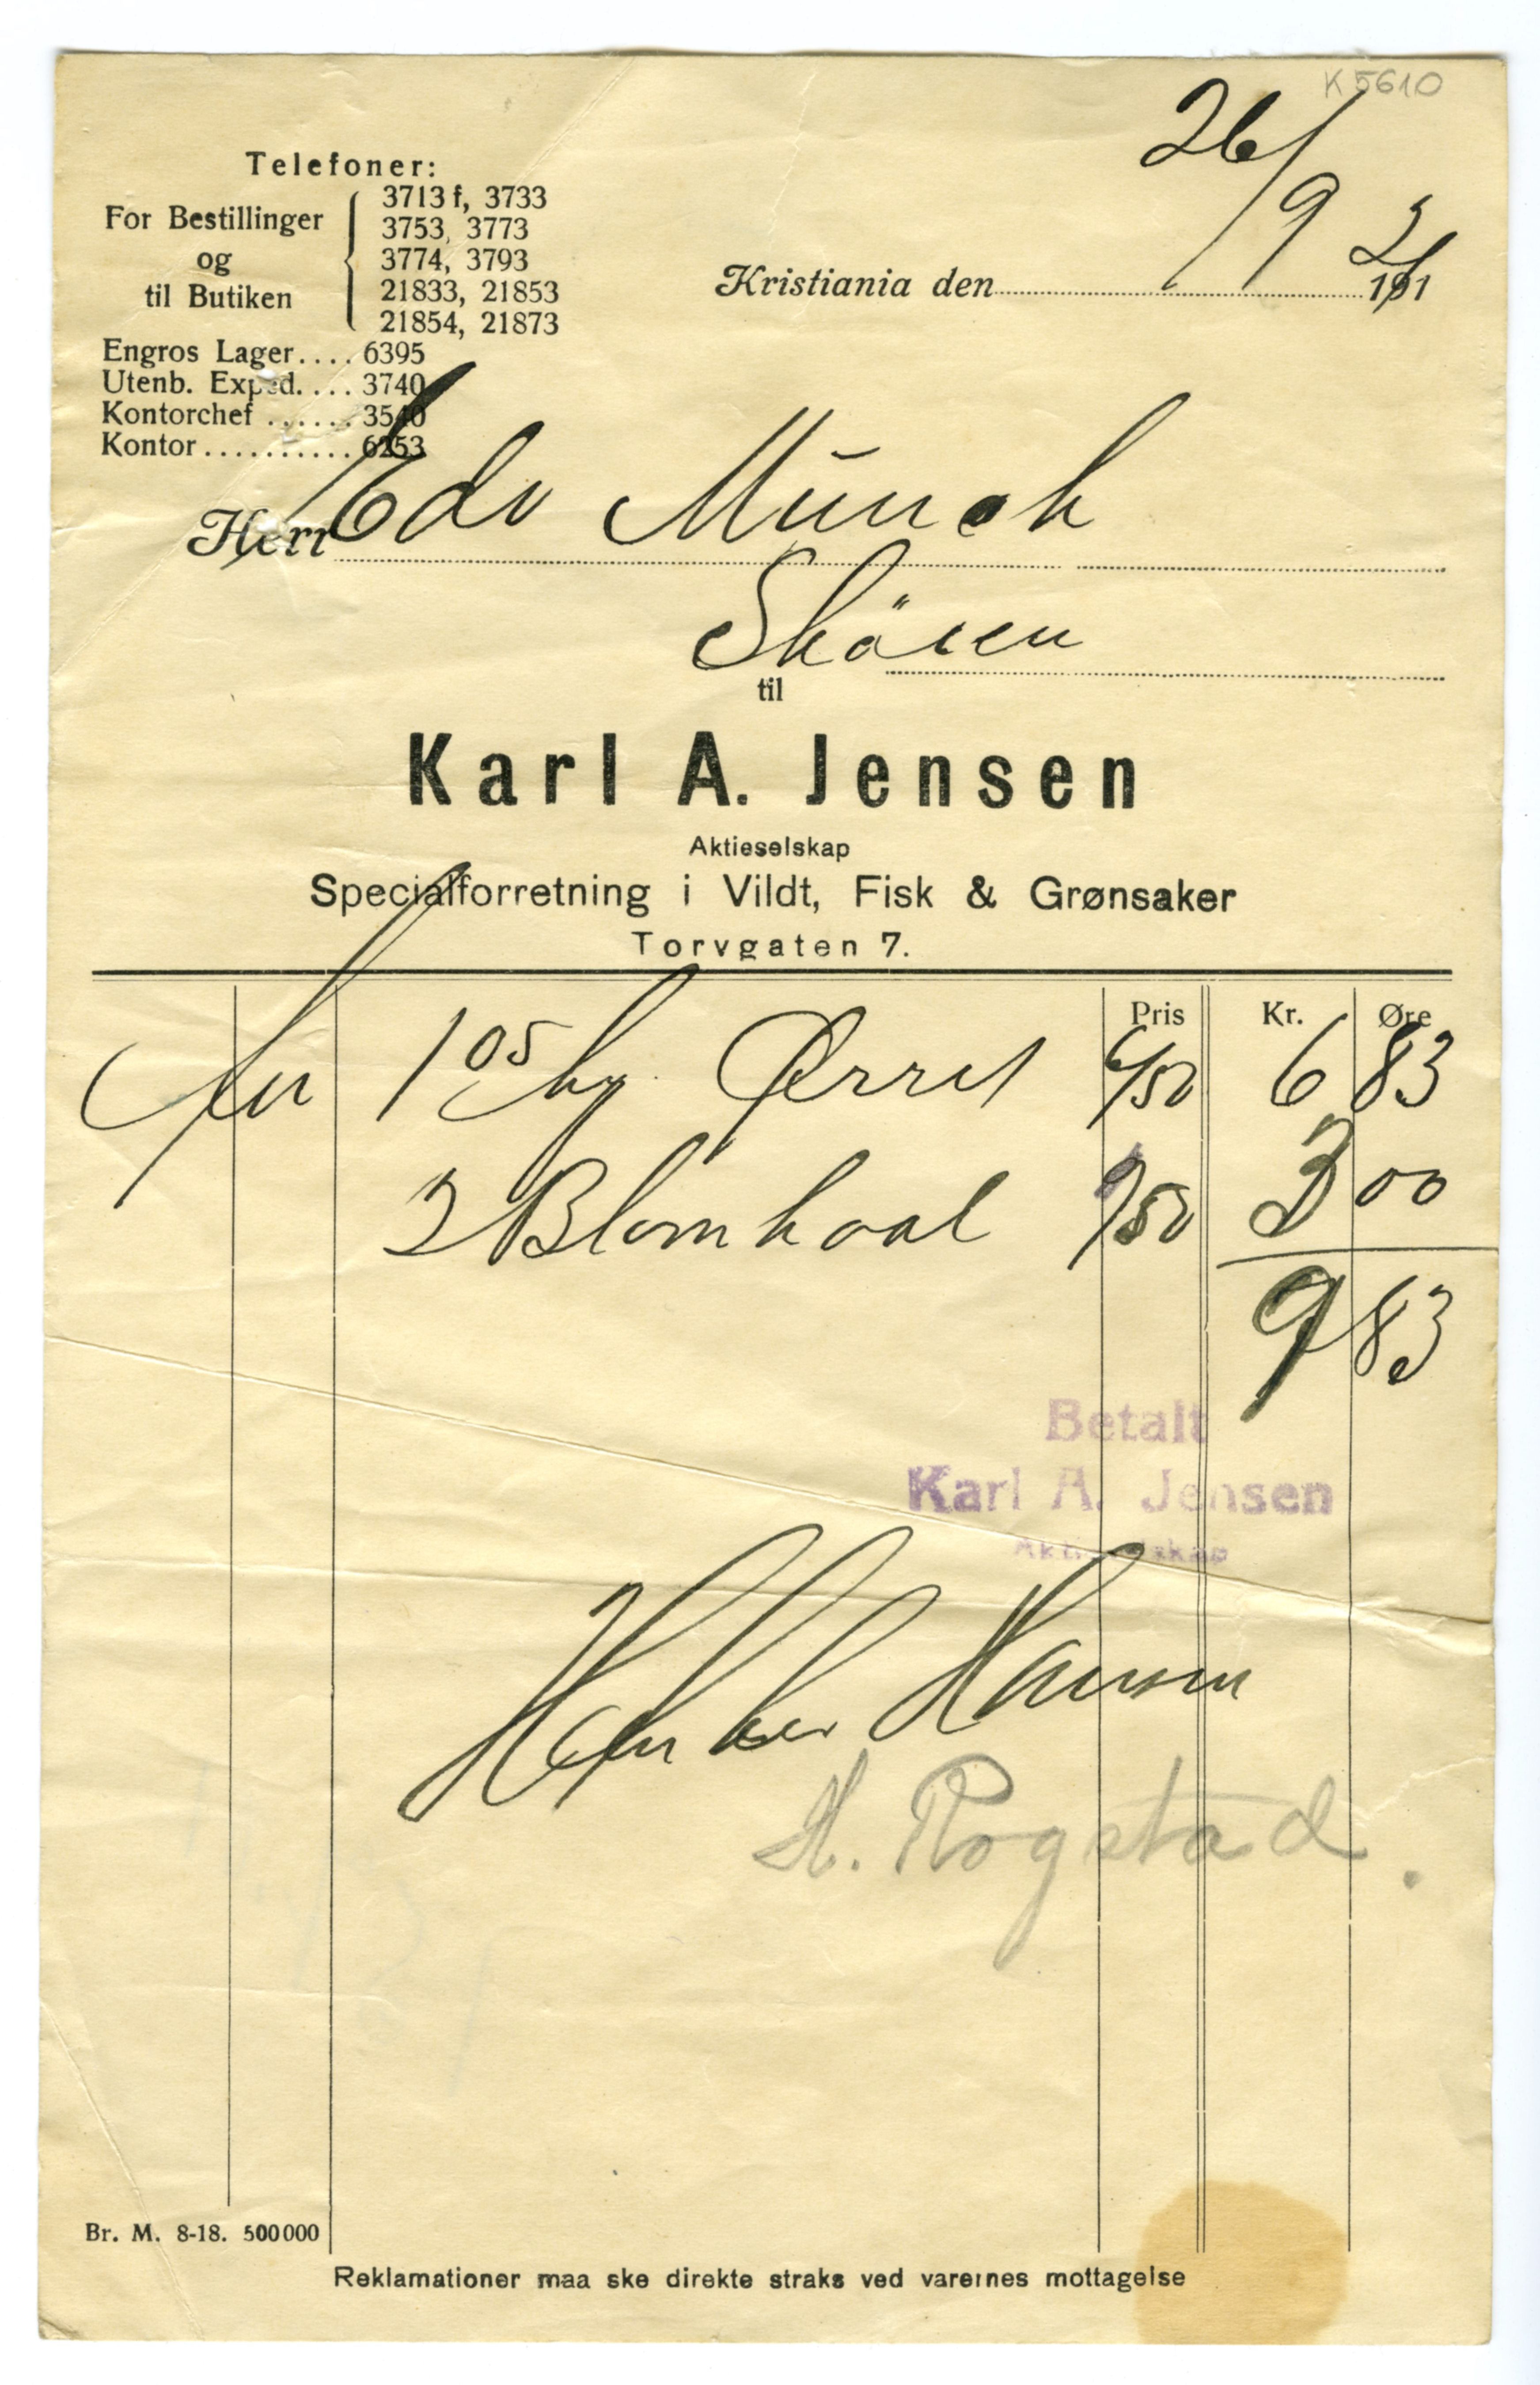 K 5610
26/9 21
Telefoner:
For Bestillinger og til Butiken
3713 f, 3733
3753, 3773
3774, 3793
21833, 21853
21854, 21873
Kristiania den 191
Engros Lager.... 6395
Utenb. Exped. ... 3740
Kontorchef ...... 3540
Kontor .......... 6253
Herr Edv Münch
Sköien
til
Karl A. Jensen
Aktieselskap
Specialforretning i Vildt, Fisk & Grønsaker
Torvgaten 7.
Pris Kr. Øre
1 05 kg. Ørret 6/50 6 83
2 Blomkaal /50 3 00
9 83
Betalt
Karl A. Jensen
Aktieselskap
Hansen
H. Rogstad.
Br. M. 8-18. 500000
Reklamationer maa ske direkte straks ved varernes mottagelse